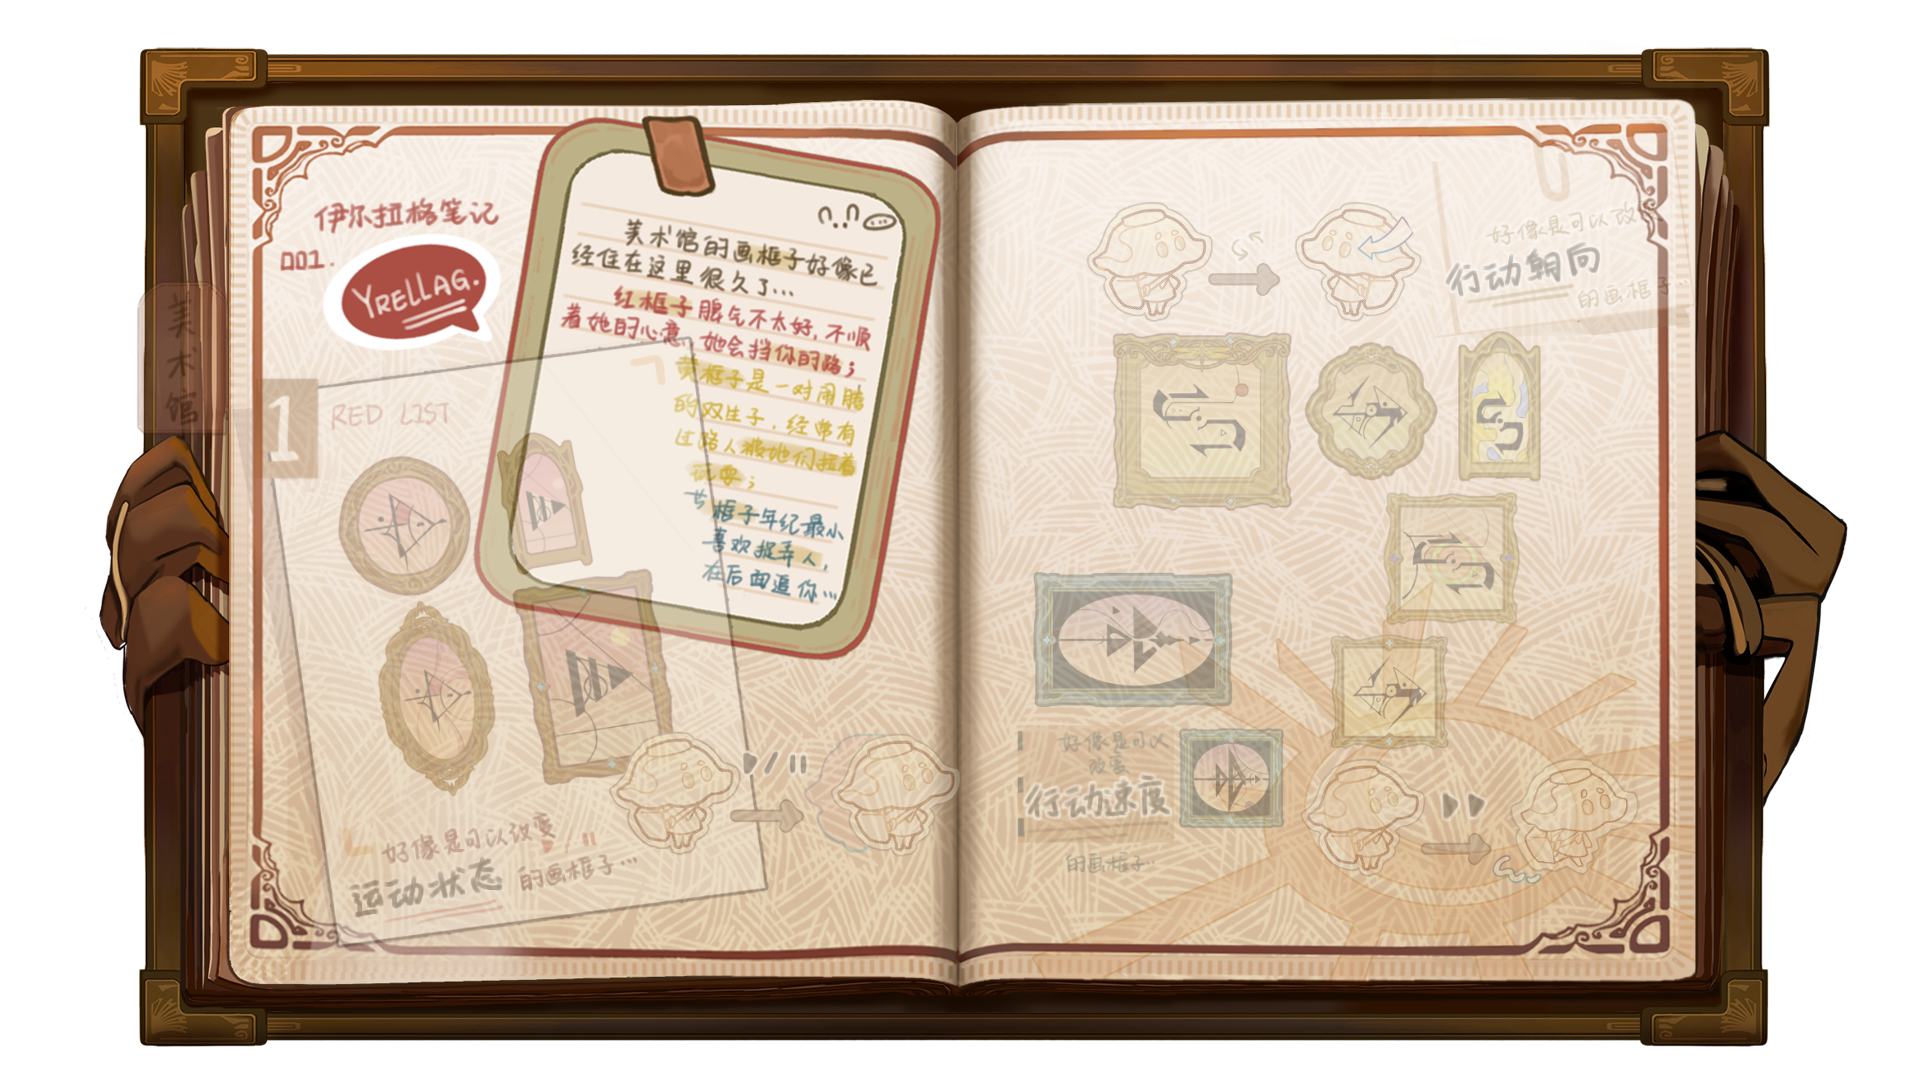 伊尔拉格笔记
001.
YRELLAG.
美术馆
美术馆的画框子好像已
经住在这里很久了...
红框子脾气不太好,不顺
着她的心意,她会挡你的路;
黄框子是一对闹腾
的双生子,经常有
过路人被她们拉着
玩耍;
框子年纪最小
喜欢捉弄人,
在后面追你...
1
RED LIST
好像是可以改变
运动状态
的画框子...
好像是可以改
行动朝向
的画框子...
好像是可以
改变
行动速度
的画框子...